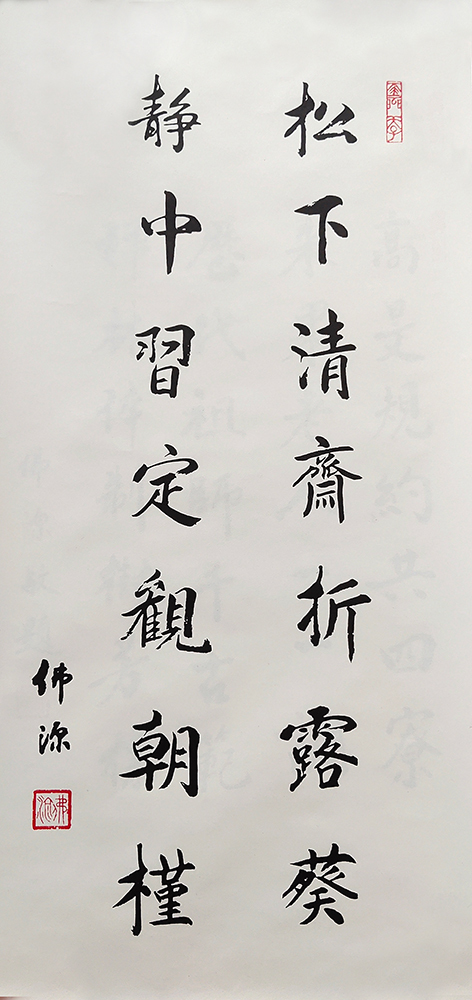 松下清齋折露葵
静中習定觀朝槿
佛源